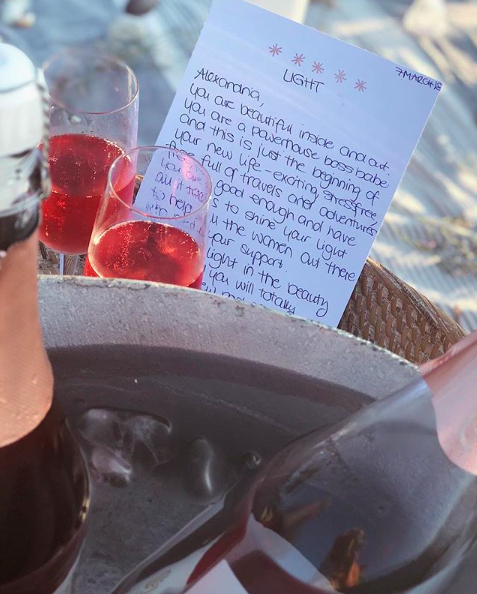 7 MARCH 18
LIGHT
Alexandria,
you are beautiful inside and out.
you are a powerhouse boss babe
and this is just the beginning of
your new life - exciting, stressfree,
full of travels and adventures
good enough and have
to help is to shine your light
the women out there
your support.
light in the beauty
you will totally